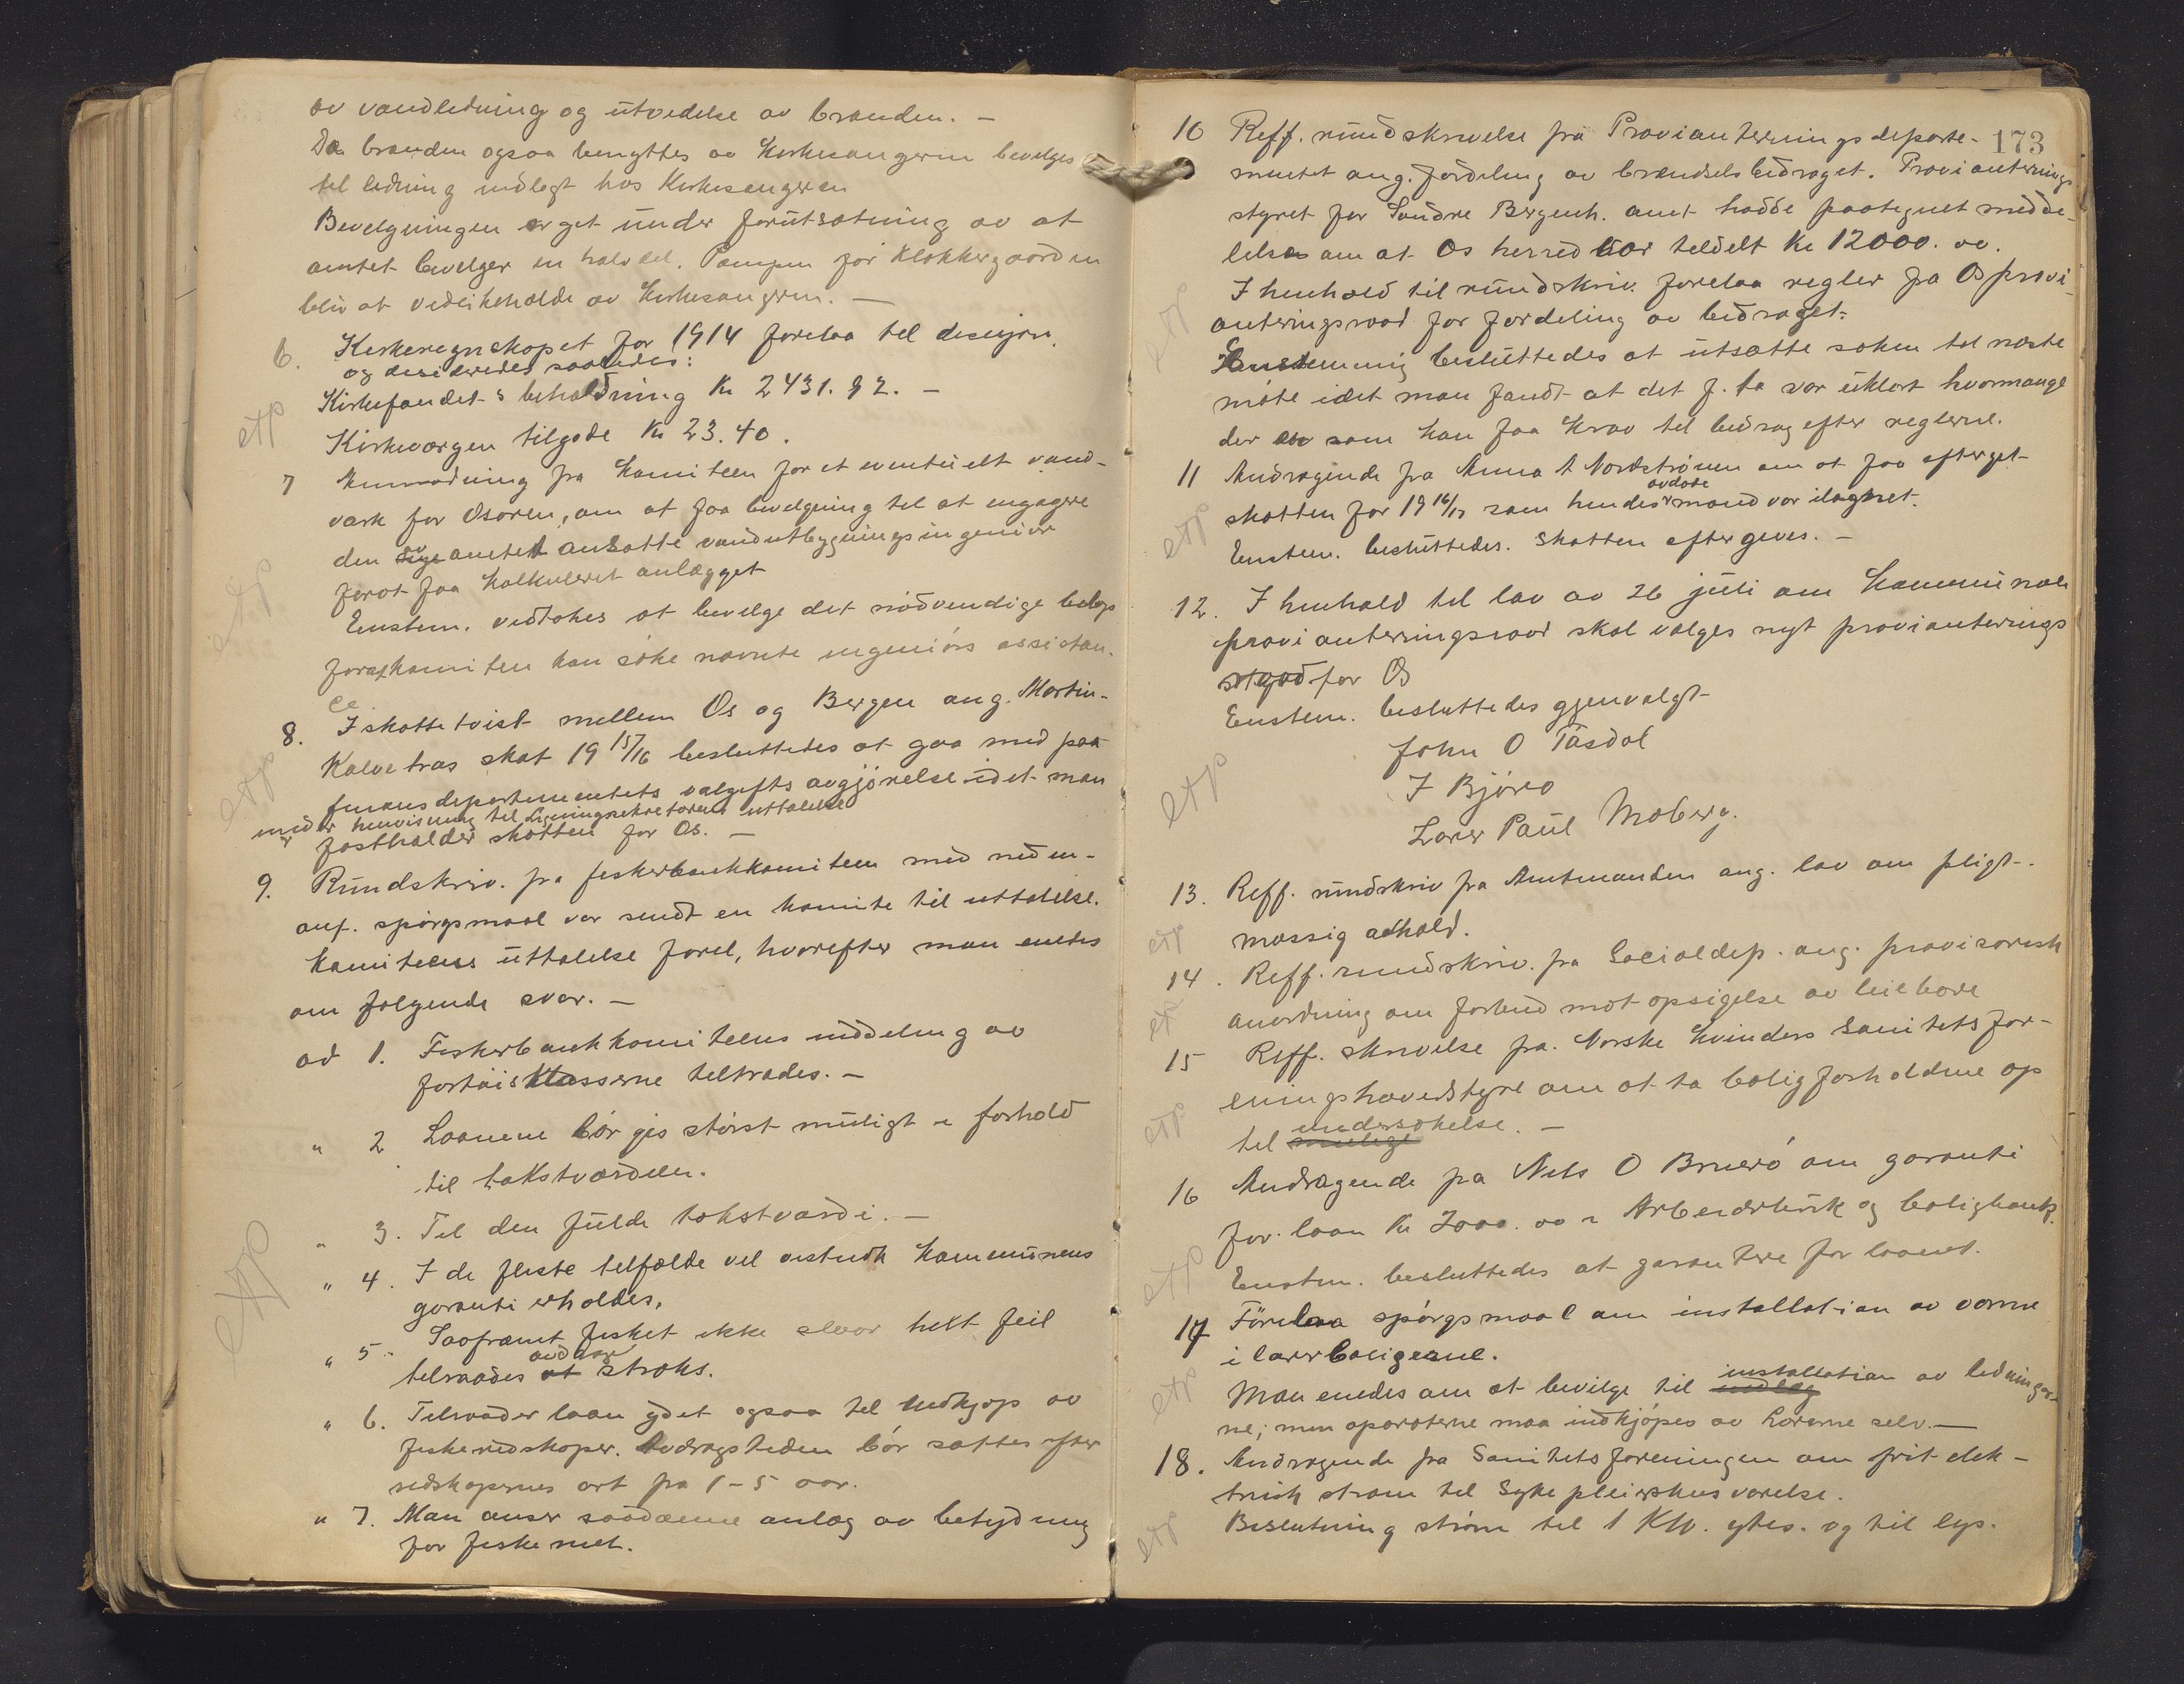 av vandledning og utvedelse av brønden. —
Da brønden ogsaa benyttes av Kirkesangeren bevilges
til ledning indlagt hos Kirkesangeren
Bevilgningen er get under forutsætning av at
amtet bevilger en halvdel. Pumpen for Klokkergaarden
blir at vedlikeholde av Kirkesangeren. —
6. Kirkeregnskapet for 1914 forelaa til desisjon,
og desideredes saaledes:
Kirkefondet-s beholdning Kr 2431.92. —
Kirkeværgen tilgode Kr 23.40.
etp
7 Anmodning fra Komiteen for et eventuelt vand-
værk for Osøren, om at faa bevilgning til at engagere
den av amtet ansatte vandutbygningsingeniør
for at faa kalkuleret anlægget
etp
Enstem. vedtokes at bevilge det nødvendige beløp
for at komiteen kan søke nævnte ingeniørs assistan-
ce
8. I skattetvist mellem Os og Bergen ang. Martin
Kalvetræs skat 19 15/16 besluttedes at gaa med paa
finansdepartementets valgifts avgjørelse idet man
under henvisning til Ligningssekretærens uttalelse
fastholder skatten for Os. —
etp
9. Rundskriv. fra fiskerbankkomiteen med neden-
anf. spørgsmaal var sendt en komite til uttalelse.
Komiteens uttalelse forel, hvorefter man enedes
om følgende svar. —
ad 1. Fiskerbankkomiteens inddeling av
fartøisklasserne tiltrædes. —
" 2 Laanene bør gis størst muligt i forhold
til takstværdien.
" 3. Til den fulde takstværdi. —
" 4. I de fleste tilfælde vil antydk kommunens
garanti erholdes.
etp
" 5. Saafremt fisket ikke slaar helt feil
tilraades avdrag straks.
" 6. Tilraader laan ydet ogsaa til Indkjøp av
fiskeredskaper. Avdragstiden bør sættes efter
redskapernes art fra 1-5 aar.
" 7. Man anser saadanne anlæg av betydning
for fiskeriet.
173
10 Reff. rundskrivelse fra Provianteringsdeparte-
mentet ang. fordeling av brændselsbidraget. Provianterings
styret for Søndre Bergenh. amt hadde paategnet medde-
lelse om at Os herred var tildelt Kr 12000.00.
I henhold til rundskriv. forelaa regler fra Os provi-
anteringsraad for fordeling av bidraget.
etp
Enstemmig besluttedes at utsætte saken til næste
møte idet man fandt at det f. ta var uklart hvormange
der som kan faa krav til bidrag efter reglerne.
11 Andragende fra Anna A Nordstrønen om at faa efterget
skatten for 19 16/17 som hendes avdøde mand var ilagnet.
Enstem. besluttedes. Skatten eftergives. —
etp
12. I henhold til lov av 26 juli om Kommunale
provianteringsraad skal vælges nyt provianterings
raad for Os
Enstem. besluttedes gjenvalgt
John O Tøsdal
I Bjørø
Lærer Paul Moberg.
etp
13. Reff. rundskriv fra Amtmanden ang. lov om pligt-
mæssig avhold.
etp
14. Reff. rundskriv. fra Socialdep. ang. provisorisk
anordning om forbud mot opsigelse av leieboere
etp
15 Reff. skrivelse fra Norske Kvinders Sanitetsfor-
eningshovedstyre om at ta boligforholdene op
til undersøkelse. —
etp
16 Andragende fra Nils O Bruerø om garanti
for laan Kr 7000.00 i Arbeiderbruk og boligbank.
Enstem. besluttedes at garantere for laanet.
etp
17 Forelaa spørgsmaal om installation av varme
i lærerboligerne.
Man enedes om at bevilge til installation av ledninger-
ne; men aparaterne maa indkjøpes av Lærerne selv. —
etp
18. Andragende fra Sanitetsforeningen om frit elek-
trisk strøm til Sykepleierskens værelse.
Beslutning strøm til 1 KW. ytes. og til lys.
etp